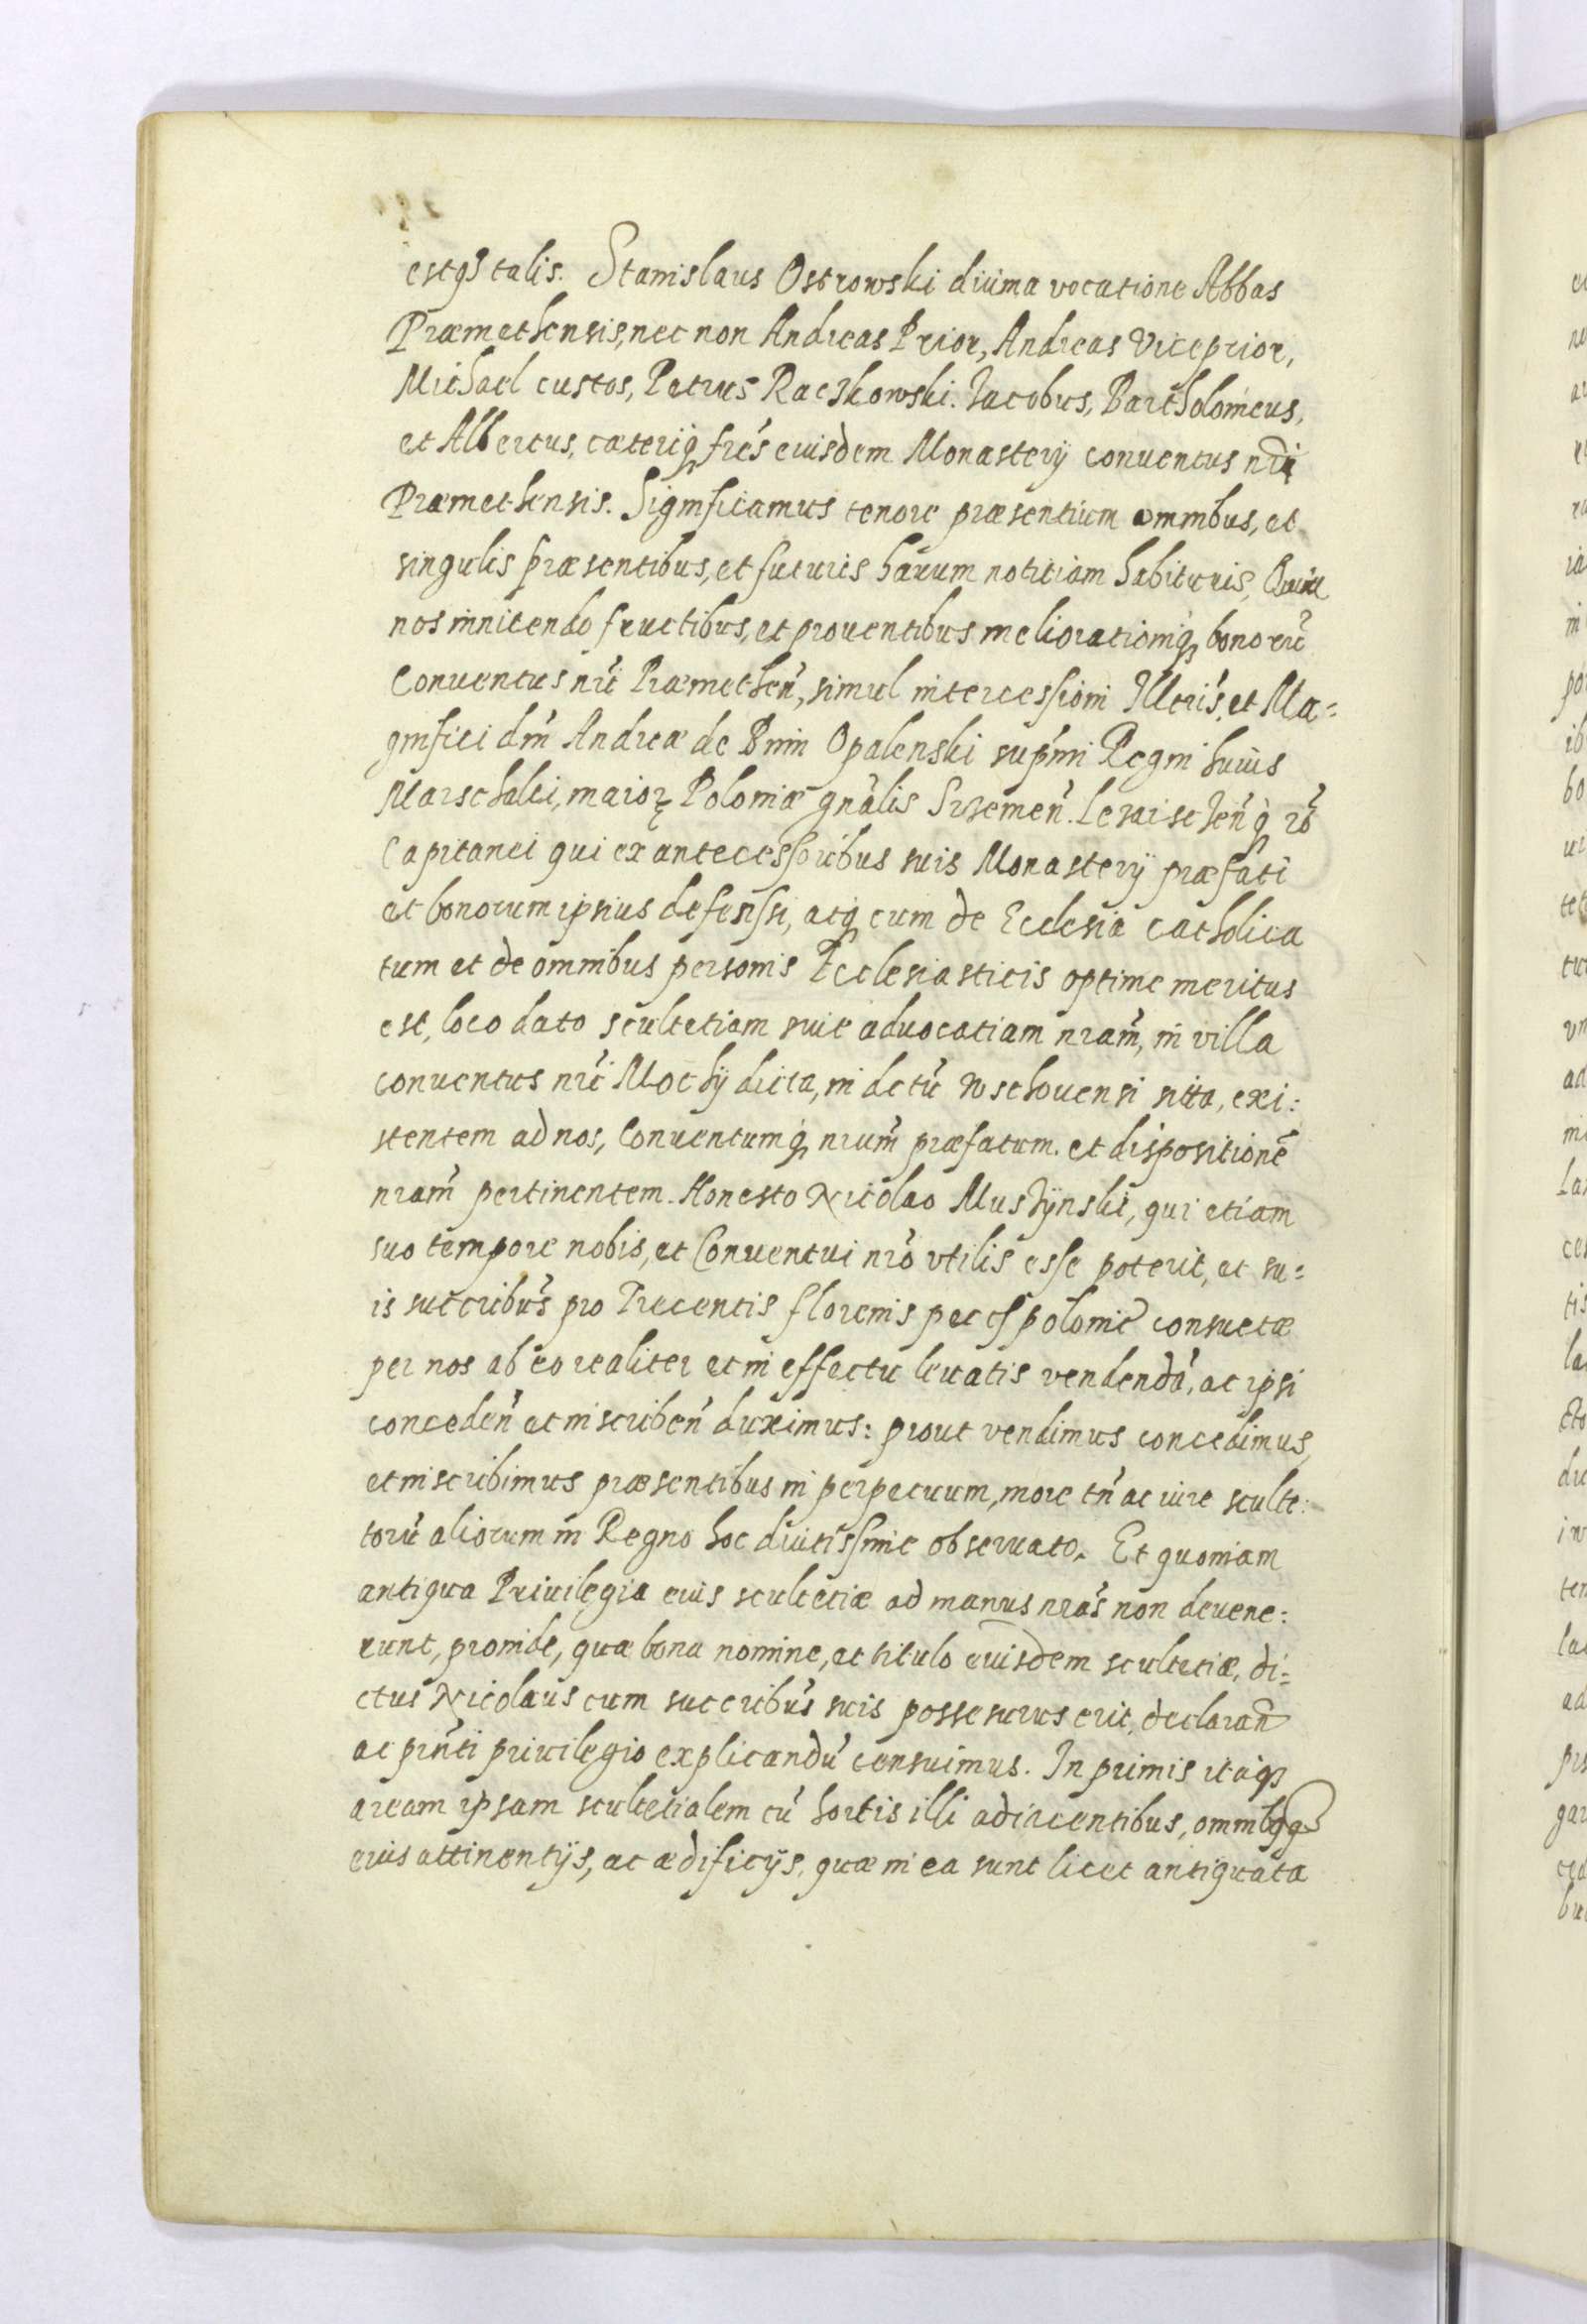 estqз talis. Stanislaus Ostrowski diuina vocatione Abbas
Præmethensis, nec non Andreas Prior, Andreas Viceprior,
Michael custos, Petrus Raczkowski. Jacobus, Bartholomeus,
et Albertus, cæteriq frēs euisdem Monasterij conuentus nři
Præmethensis. Significamus tenore præsentium omnibus, et
singulis præsentibus, et futuris harum notitiam habituris,
nos innitendo fructibus, et prouentibus meliorationiq bonorū
Conuentus nrī Præmetheñ, simul intercessioni Illtris. et Ma=
gnifici dm̃ Andreæ de Bnin Opalenski sup̃mi Regni huius
Marschalci, maioꝝ Poloniæ gñalis Srzemeñ.
Capitanei qui ex antecessoribus suis Monasterij præfati
et bonorum ipsius defenssi, atq cum de Ecclesia catholica
tum et de omnibus personis Ecclesiasticis optime meritus
est, loco dato scultetiam siue aduocatiam nram̃, in villa
conuentus nrī Mochÿ dicta, in dctū Wschouensi sitta, exi:
stentem ad nos, Conuentumq nrum̃ præfatum. et dispositionē
nram̃ pertinentem. Honesto Nicolao Muszÿnski, qui etiam
suo tempore nobis, et Conuentui nrō vtilis esse poterit, et su=
is succribūs pro Trecentis florenis pec polonic̃ consuetæ
per nos ab eo realiter et in effectu leuatis vendendā, ac ipsi
concedeñ et inscribeñ duximus: prout vendimus concedimus,
et inscribimus præsentibus in perpetuum, more tñ ac iure sculte:
torū aliorum in Regno hoc diutissime obseruato. Et quoniam
antiqua Priuilegia eius scultetiæ ad manus nrās non deuene:
runt, proinde, quæ bona nomine, et titulo euisdem scultetiæ, di=
ctus Nicolaus cum succribūs suis possesurus erit, declarañ
ac prñti priuilegio explicandū censuimus. In primis itaqз
aream ipsam scultetialem cū hortis illi adiacentibus,
eius attinentijs, ac ædificijs, quæ in ea sunt licet antiquata